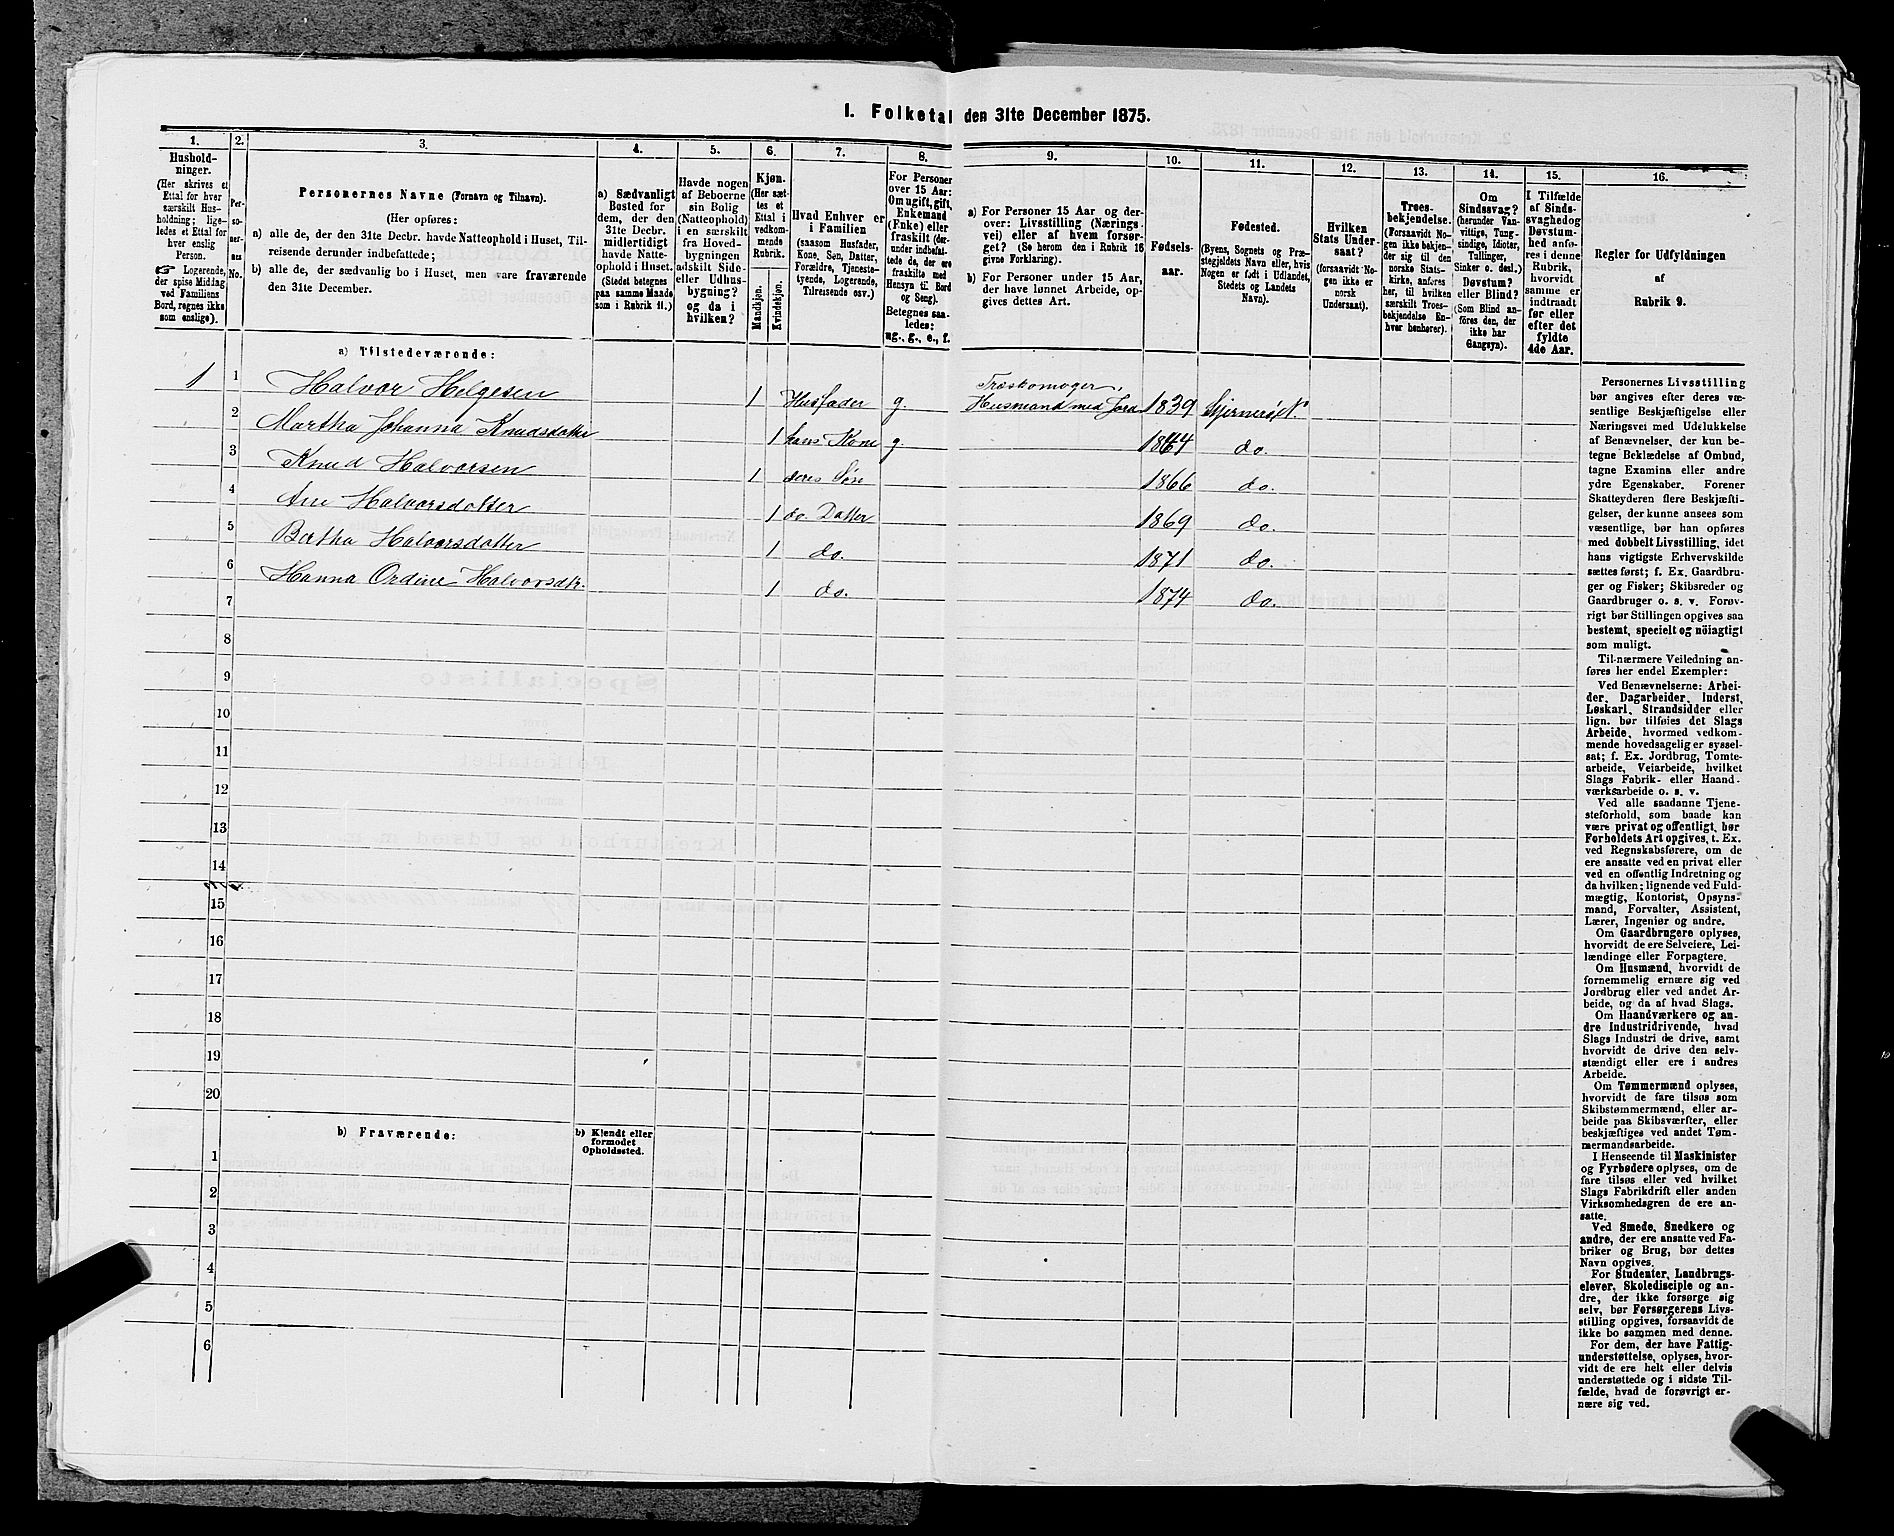 I. Folketal den 31te December 1875.
1.
Hushold-
ninger.
(Her skrives et
Ettal for hver
særskilt Hus-
holdning; lige-
ledes et Ettal for
hver enslig
Person.
☞ Logerende,
der spise Middag
ved Familiens
Bord, regnes ikke
som enslige).
2.
Per-
so-
ner-
nes
No.
3.
Personernes Navne (Fornavn og Tilnavn).
(Her opføres:
a) alle de, der den 31te Decbr. havde Natteophold i Huset, Til-
reisende derunder indbefattede;
b) alle de, der sædvanlig bo i Huset, men vare fraværende
den 31te December.
4.
a) Sædvanligt
Bosted for
dem, der den
31te Decbr.
midlertidigt
havde Natte-
ophold i Huset.
(Stedet betegnes
paa samme Maade
som i Rubrik 11.)
5.
Havde nogen
af Beboerne
sin Bolig
(Natteophold)
i en særskilt
fra Hoved-
bygningen
adskilt Side-
eller Udhus-
bygning?
og da i
hvilken?
6.
Kjøn.
(Her sæt-
tes et
Ettal i
vedkom-
mende
Rubrik.
Mandkjøn.
Kvindekjøn.
7.
Hvad Enhver er
i Familien
(saasom Husfader,
Kone, Søn, Datter,
Forældre, Tjeneste-
tyende, Logerende,
Tilreisende osv.)
8.
For Personer
over 15 Aar:
Om ugift, gift,
Enkemand
(Enke) eller
fraskilt (der-
under indbefat-
tede de, der ere
fraskilte med
Hensyn til Bord
og Seng).
Betegnes saa-
ledes:
ug., g., e., f.
9.
a) For Personer 15 Aar og der-
over: Livsstilling (Nærings-
vei) eller af hvem forsør-
get? (Se herom den i Rubrik 16
givne Forklaring).
b) For Personer under 15 Aar,
der have lønnet Arbeide, op-
gives dettes Art.
10.
Fødsels-
aar.
11.
Fødested.
(Byens, Sognets og Præ-
stegjeldets Navn eller, hvis
Nogen er født i Udlandet,
Stedets og Landets
Navn).
12.
Hvilken
Stats Under-
saat?
(forsaavidt No-
gen ikke er
norsk
Undersaat).
13.
Troes-
bekjendelse.
(Forsaavidt No-
gen ikke bekjen-
der sig til den
norske Stats-
kirke, anføres
her, til hvilken
særskilt Troes-
bekjendelse En-
hver henhører).
14.
Om
Sindssvag?
(herunder Van-
vittige, Tung-
sindige, Idioter,
Tullinger,
Sinker o. desl.)
Døvstum?
eller Blind?
(Som Blind an-
føres den, der
ikke har
Gangsyn).
15.
I Tilfælde
af Sinds-
svaghed og
Døvstum-
hed anfø-
res i denne
Rubrik,
hvorvidt
samme er
indtraadt
før eller
efter det
fyldte
4de Aar.
16.
Regler for Udfyldningen
af
Rubrik 9.
a) Tilstedeværende:
1 1 Halvor Helgesen 1 Husfader g. Træskomager, Husmand med Jord 1839
2 Martha Johanna Knudsdatter 1 hans Kone g. 1844 do.
3 Knud Halvorsen 1 deres Søn 1866 do.
4 Ane Halvorsdatter 1 do. Datter 1869 do.
5 Bertha Halvorsdatter 1 do. 1871 do.
6 Hanna Ordine Halvorsdtr. 1 do. 1874 do.
7
8
9
10
11
12
13
14
15
16
17
18
19
20
b) Fraværende:
b) Kjendt eller
formodet
Opholdssted.
1
2
3
4
5
6
Personernes Livsstilling
bør angives efter deres væ-
sentlige Beskjæftigelse eller
Næringsvei med Udelukkelse
af Benævnelser, der kun be-
tegne Beklædelse af Ombud,
tagne Examina eller andre
ydre Egenskaber. Forener
Skatteyderen flere Beskjæfti-
gelser, der kunne ansees som
væsentlige, bør han opføres
med dobbelt Livsstilling, idet
hans vigtigste Erhvervskilde
sættes først; f. Ex. Gaardbru-
ger og Fisker; Skibsreder og
Gaardbruger o. s. v. Forøv-
rigt bør Stillingen opgives saa
bestemt, specielt og nöiagtigt
som muligt.
Til nærmere Veiledning an-
føres her endel Exempler:
Ved Benævnelserne: Arbei-
der, Dagarbeider, Inderst,
Løskarl, Strandsidder eller
lign. bør tilføies det Slags
Arbeide, hvormed vedkom-
mende hovedsagelig er syssel-
sat; f. Ex. Jordbrug, Tomte-
arbeide, Veiarbeide, hvilket
Slags Fabrik- eller Haand-
værksarbeide o. s. v.
Ved alle saadanne Tjene-
steforhold, som baade kan
være privat og offentligt, bør
Forholdets Art opgives, t. Ex.
ved Regnskabsførere, om de
ere ansatte ved en privat eller
ved en offentlig Indretning og
da hvilken; lignende ved Fuld-
mægtig, Kontorist, Opsyns-
mand, Forvalter, Assistent,
Lærer, Ingeniør og andre.
Om Gaardbrugere oplyses,
hvorvidt de ere Selveiere, Lei-
lændinge eller Forpagtere.
Om Husmænd, hvorvidt de
fornemmelig ernære sig ved
Jordbrug eller ved andet Ar-
beide, og da af hvad Slags.
Om Haandværkere og an-
dre Industridrivende, hvad
Slags Industri de drive, samt
hvorvidt de drive den selv-
stændigt eller ere i andres
Arbeide.
Om Tømmermænd oplyses,
hvorvidt de fare tilsøs som
Skibstømmermænd, eller ar-
beide paa Skibsværfter, eller
beskjæftiges ved andet Tøm-
mermandsarbeide.
I Henseende til Maskinister
og Fyrbødere oplyses, om de
fare tilsøs eller ved hvilket
Slags Fabrikdrift eller anden
Virksomhedsgren de ere an-
satte.
Ved Smede, Snedkere og
andre, der ere ansatte ved Fa-
briker og Brug, bør dettes
Navn opgives.
For Studenter, Landbrugs-
elever, Skoledisciple og an-
dre, der ikke forsørge sig
selv, bør Forsørgerens Livs-
stilling opgives, forsaavidt de
ikke bo sammen med denne.
For dem, der have Fattig-
understøttelse, oplyses, hvor-
vidt de ere helt eller delvis
understøttede og i sidste Til-
fælde, hvad de forøvrigt er-
nære sig ved.